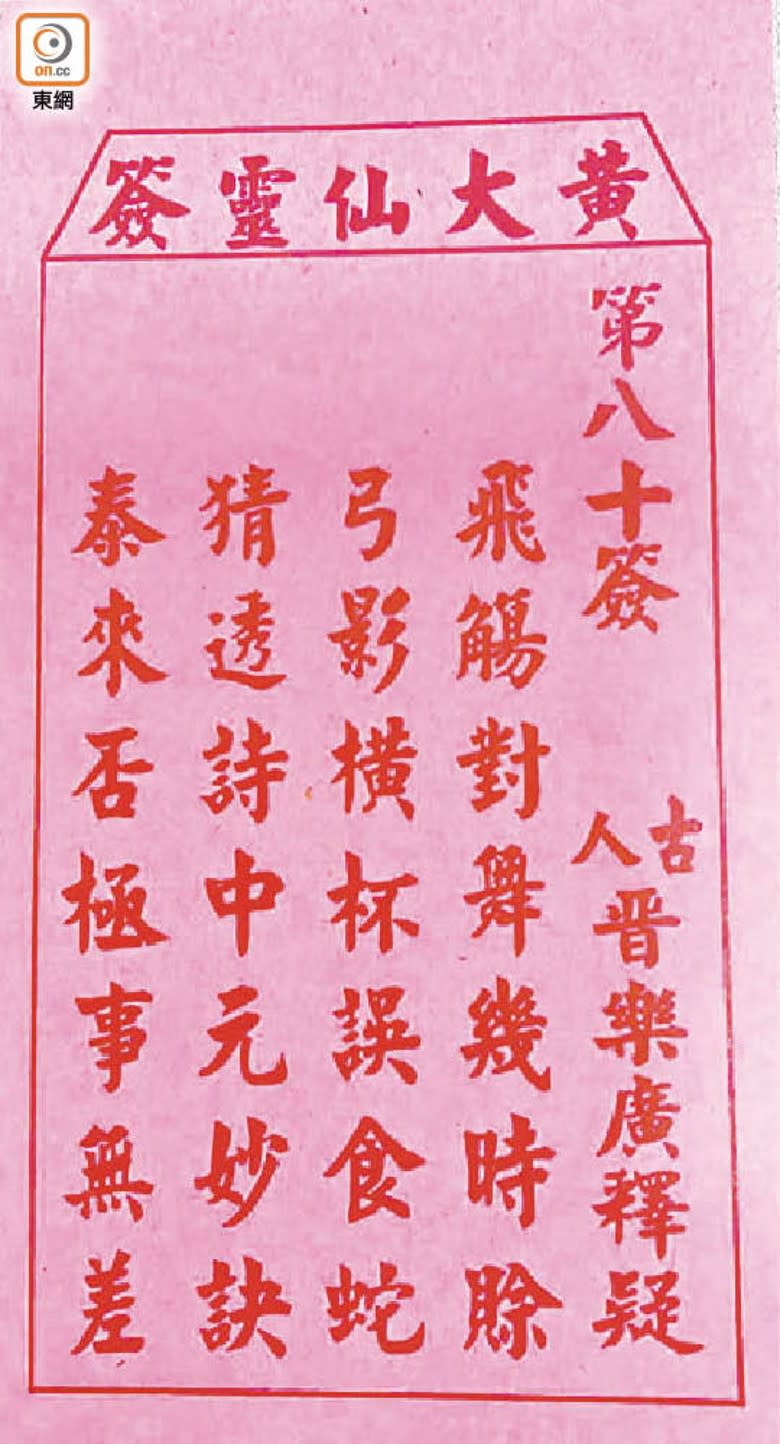 on.cc
東網
黃大仙靈簽
第八十簽
古人
晋樂廣釋疑
飛觴對舞幾時賖
弓影橫杯誤食蛇
猜透詩中元妙訣
泰來否極事無差